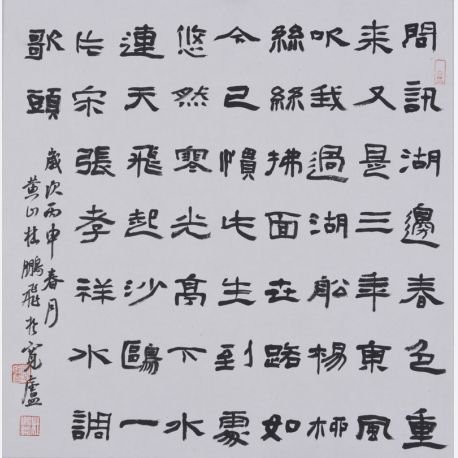 問訊湖邊春色重
来又是三年東風
吹我過湖船楊柳
絲絲拂面世路如
今已慣此生到處
悠然寒光亭下水
連天飛起沙鷗一
片宋張孝祥水調
歌頭
歲次丙申春月
黄山桂鵬飛於寬廬